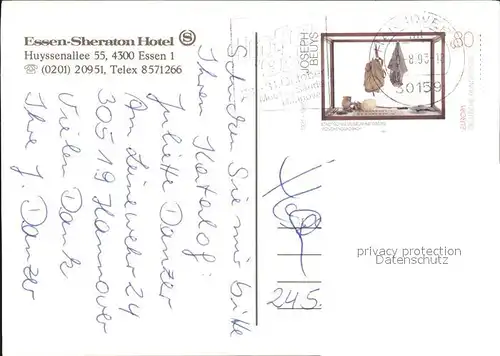 Essen-Sheraton Hotel S
Huyssenallee 55, 4300 Essen 1
☏ (0201) 20951, Telex 8571266
Schicken Sie mir bitte
Ihren Katalog:
Juliette Danzer
An Leinewehr 24
30519 Hannover
Vielen Dank
Ihre J. Danzer
JOSEPH
BEUYS
80
8.93
30159
EUROPA
DEUTSCHE BUNDESPOST
245.
privacy protection
Datenschutz